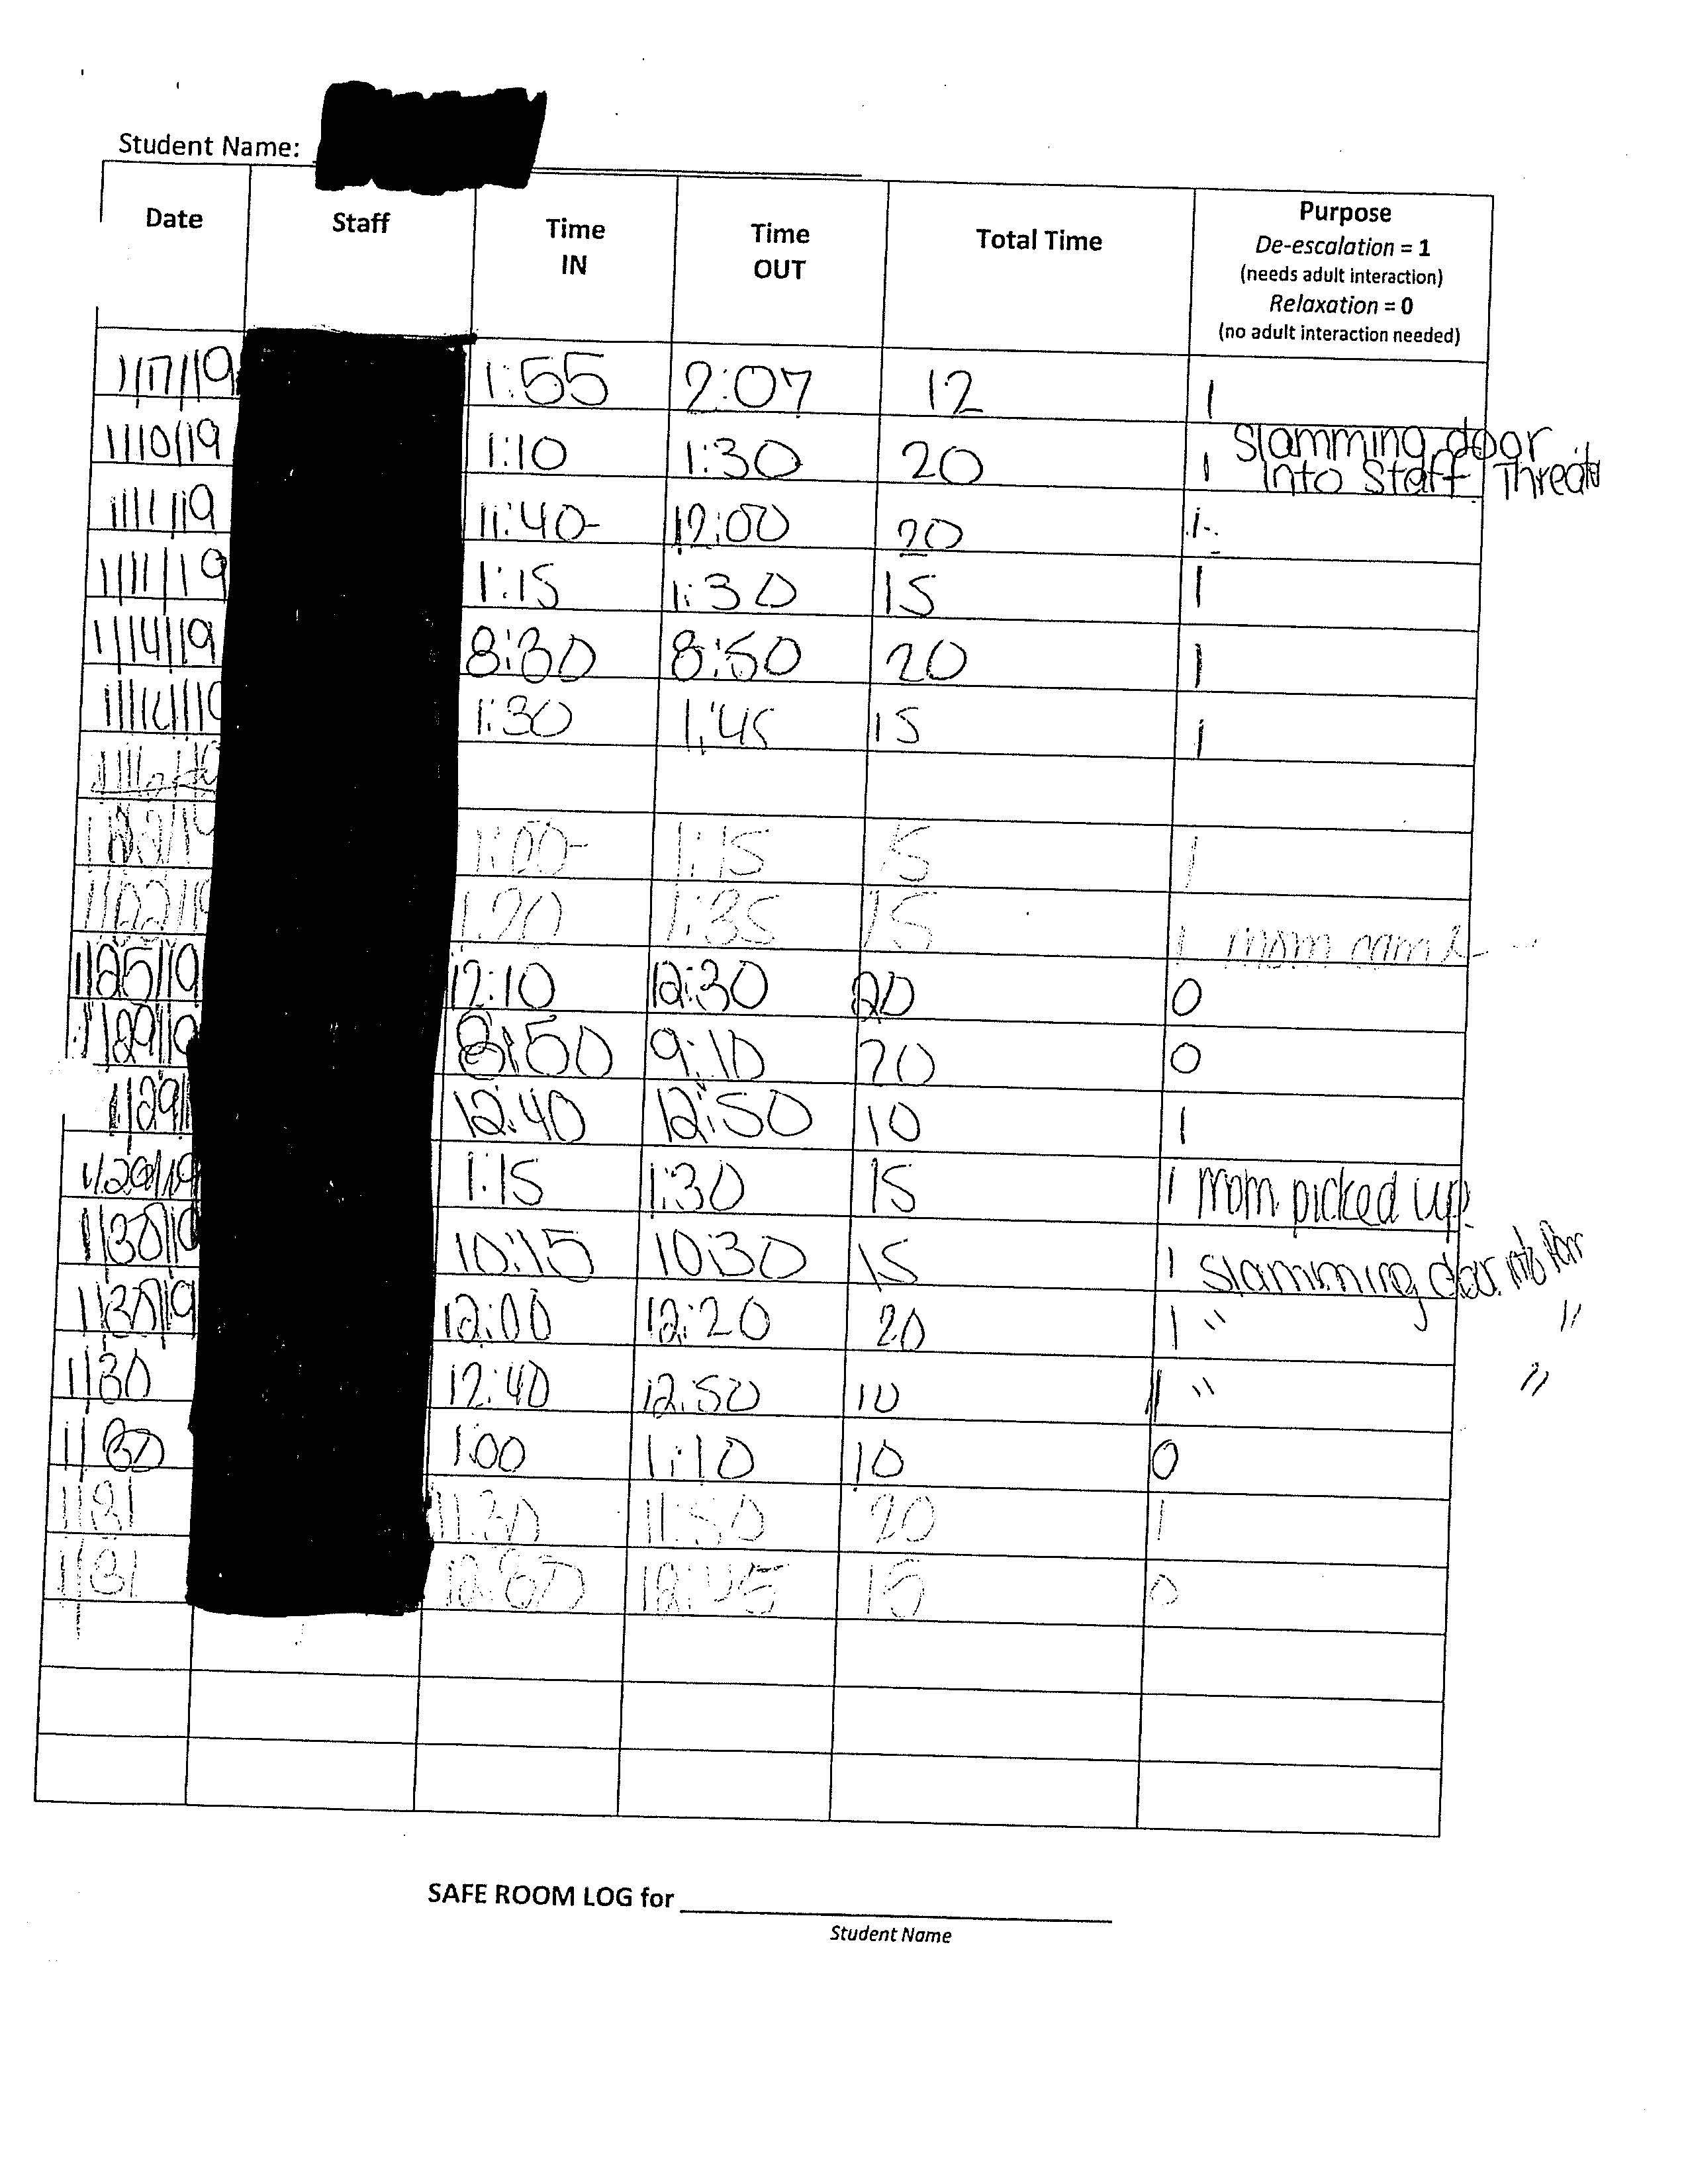 Student Name:
Date Staff Time IN Time OUT Total Time Purpose
De-escalation = 1
(needs adult interaction)
Relaxation = 0
(no adult interaction needed)
1/17/19 1:55 2:07 12 1
1/10/19 1:10 1:30 20 1 Slamming door
into Staff Threats
1/11/19 11:40- 12:00 20 1
1/11/19 1:15 1:30 15 1
1/14/19 8:30 8:50 20 1
1:30 1:45 15 1
1:00- 1:15 15 1
1/22/19 1:20 1:35 15 1 mom came
1/25/19 12:10 12:30 20 0
1/29/19 8:50 9:10 20 0
1/29/ 12:40 12:50 10 1
1/29/19 1:15 1:30 15 1 Mom picked up
1/30/19 10:15 10:30 15 1 Slamming door into
1/30/19 12:00 12:20 20 1 " "
1/30 12:40 12:50 10 1 " "
1/30 1:00 1:10 10 0
1/31 11:30 11:50 20 1
1/31 12:30 12:45 15 0
SAFE ROOM LOG for
Student Name